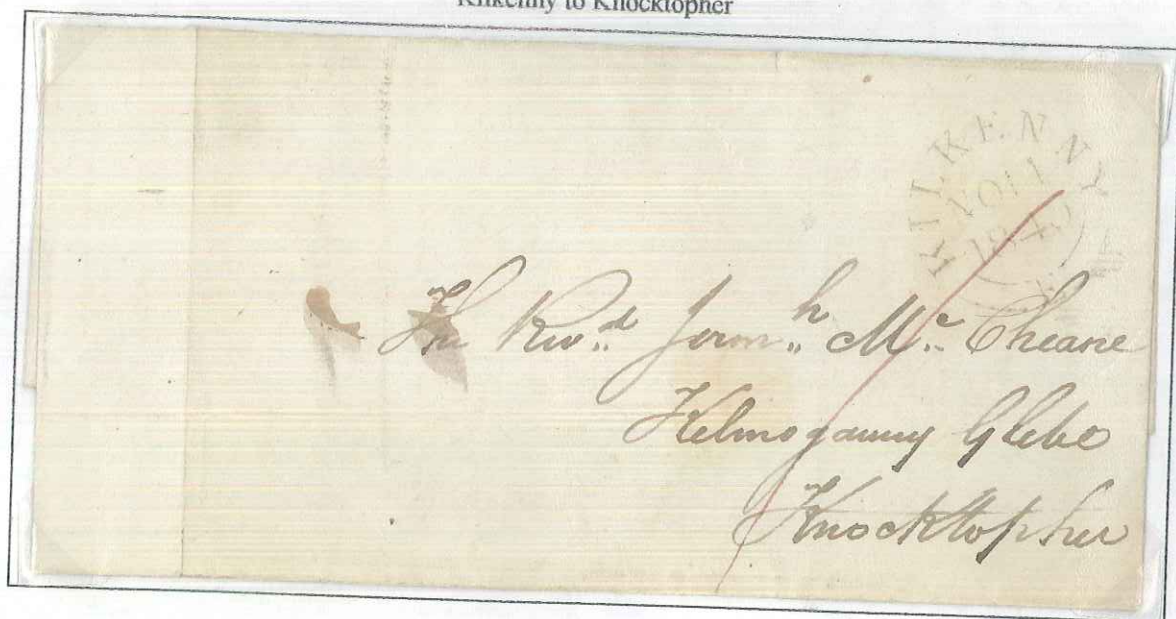 Kilkenny to Knocktopher
KILKENNY
NO 11
1840
The Revd. Jerem.h Mc. Cheane
Kilmoganny Glebe
Knocktopher